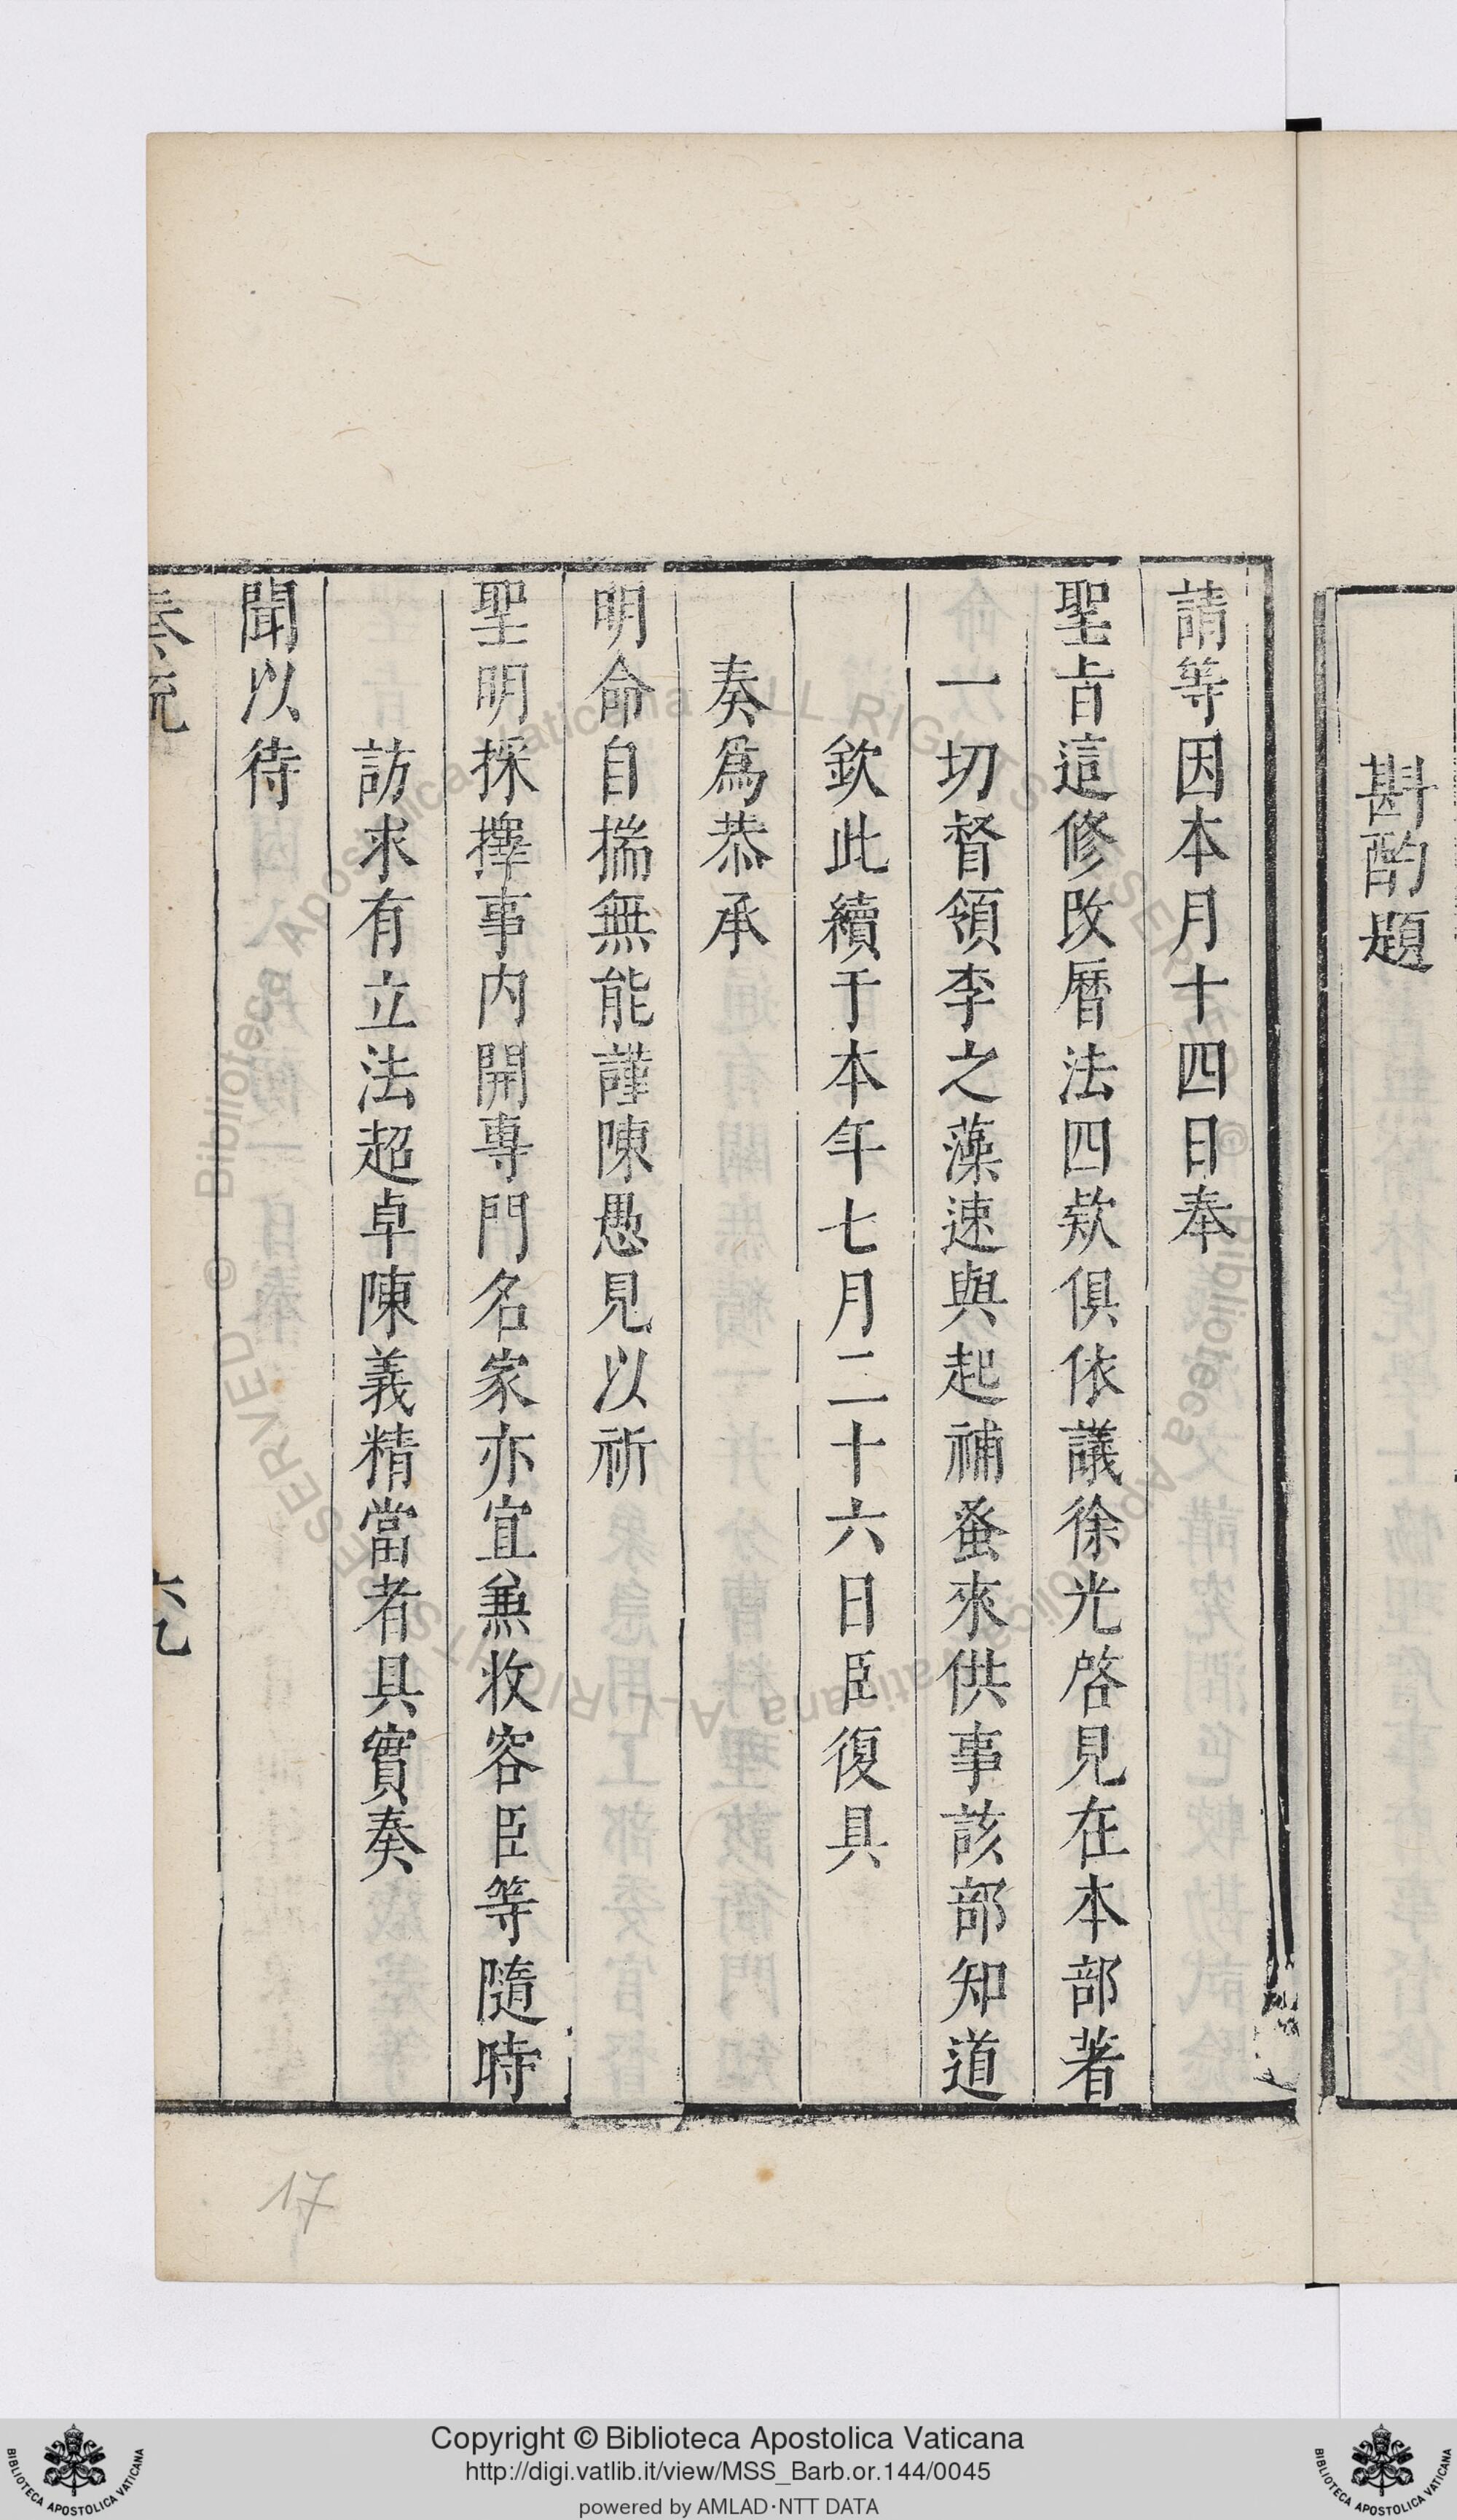 斟酌題
請等因本月十四日奉
聖旨這修改曆法四欵俱依議徐光啓見在本部著
一切督領李之藻速與起補蚤來供事該部知道
欽此續于本年七月二十六日臣復具
奏爲恭承
明命自揣無能謹陳愚見以祈
聖明採擇事内開專門名家亦宜兼收容臣等隨時
訪求有立法超卓陳義精當者具實奏
聞以待
17
Copyright © Biblioteca Apostolica Vaticana
http://digi.vatlib.it/view/MSS_Barb.or.144/0045
powered by AMLAD·NTT DATA
BIBLIOTECA APOSTOLICA VATICANA
BIBLIOTECA APOSTOLICA VATICANA